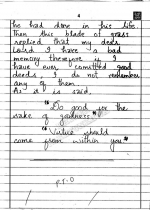 4
he had done in this life.
Then this blade of grass
replied that my dear
Lord I have a bad
memory therefore if I
have ever committed good
deeds, I do not remember
any of them.
As it is said,
"Do good for the
sake of goodness"
"Value should
come from within you"
P.T.O